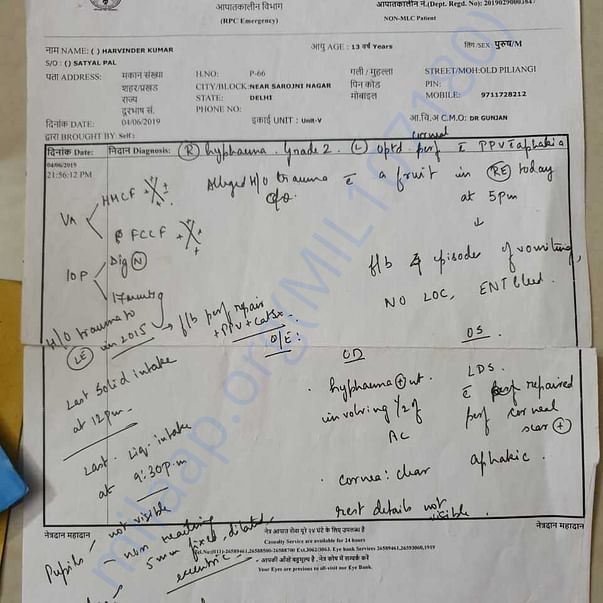 आपातकालीन विभाग
(RPC Emergency)
आपातकालीन नं.(Dept. Regd. No): 2019029000384
NON-MLC Patient
नाम NAME: () HARVINDER KUMAR
आयु AGE : 13 वर्ष Years
लिंग/SEX पुरुष/M
S/O : () SATYAL PAL
पता ADDRESS:
मकान संख्या
H.NO: P-66
गली / मुहल्ला
STREET/MOH:OLD PILIANGI
शहर/प्रखंड
CITY/BLOCK:NEAR SAROJNI NAGAR
पिन कोड
PIN:
राज्य
STATE: DELHI
मोबाइल
MOBILE: 9711728212
दूरभाष सं.
PHONE NO:
दिनांक DATE: 04/06/2019
इकाई UNIT : Unit-V
आ.चि.अ C.M.O: DR GUNJAN
द्वारा BROUGHT BY Self:
दिनांक Date:
निदान Diagnosis: (R) hyphaema. Grade 2. (L) optd. corneal perf c PPV c aphakia
04/06/2019
21:56:12 PM
Alleged H/O trauma c a fruit in (RE) today
c/o.
at 5pm
↓
VA
HMCF
FCCF
f/b 4 episodes of vomiting,
NO LOC, ENT bleed.
IOP
Dig (N)
17mmHg
H/O trauma to
(LE) in 2015 → f/b perf repair
+PPV+CatSx.
O/E:
OD
OS
Last Solid intake
at 12pm.
hyphaema (+)nt
involving 1/2 of
AC
LDS.
c perf repaired
perf corneal
scar (+)
aphakic.
Last. Liq. intake
at 9:30p.m
cornea: clear
rest details not
visible.
Pupils
not visible
non reacting
5mm fixed, dilated,
eccentric
नेत्रदान महादान
नेत्र आपात सेवा पूरे २४ घंटे के लिए उपलब्ध है
नेत्रदान महादान
Casualty Service are available for 24 hours
Tel.No:(011)-26589461,26588500-26588700 Ext.3062/3063. Eye bank Services 26589461,26593060,1919
- आपकी आँखें बहुमूल्य है . नेत्र कोष में सम्पर्क करें
Your Eyes are precious to all-visit our Eye Bank.
milaap.org(MIL1071180)